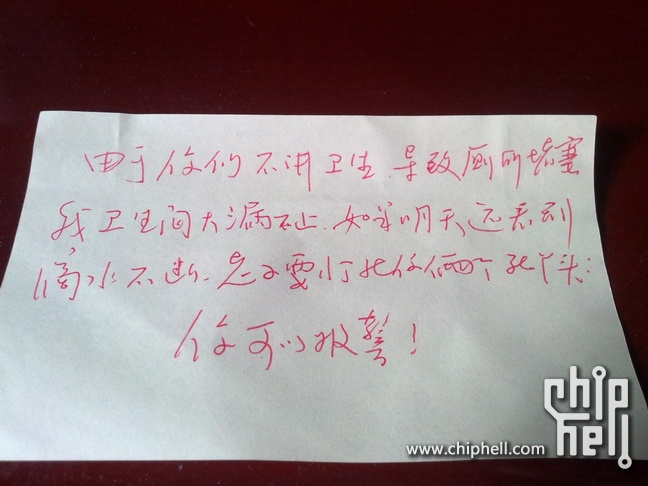 由于你们不讲卫生.导致厕所堵塞
我卫生间大漏不止.如果明天还看到
滴水不断.老子要打死你俩个死丫头:
你可以报警!
chip
hell
www.chiphell.com